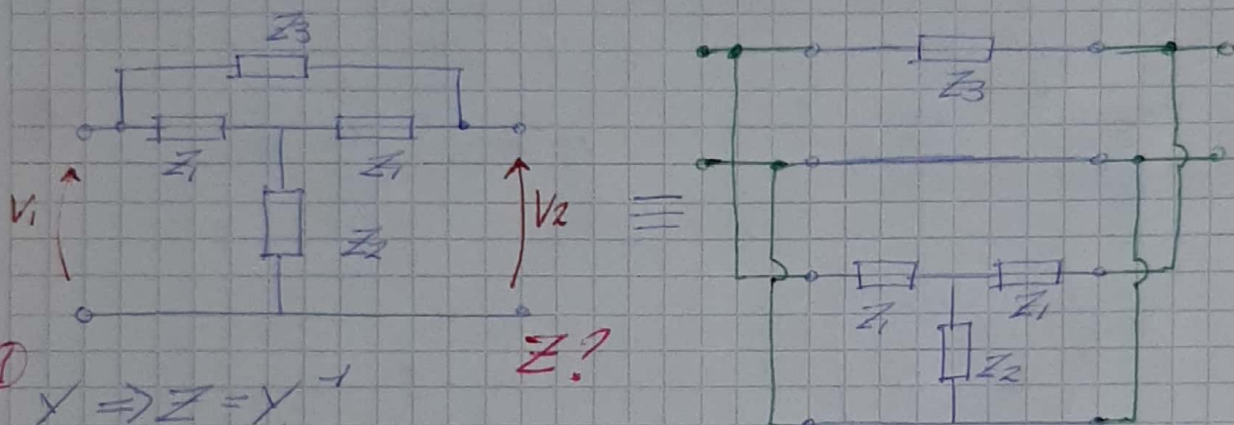 Z3
Z1 Z1
V1 Z2 V2 ≡
Z?
Y => Z = Y⁻¹
Z3
Z1 Z1
Z2